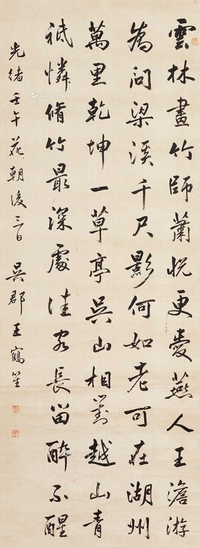 雲林畫竹師蕭悅更愛燕人王澹游
為問梁溪千尺影何如老可在湖州
萬里乾坤一草亭吳山相對越山青
祇憐脩竹最深處佳客長留醉不醒
光緒壬午花朝後三日 吳郡王鶴笙